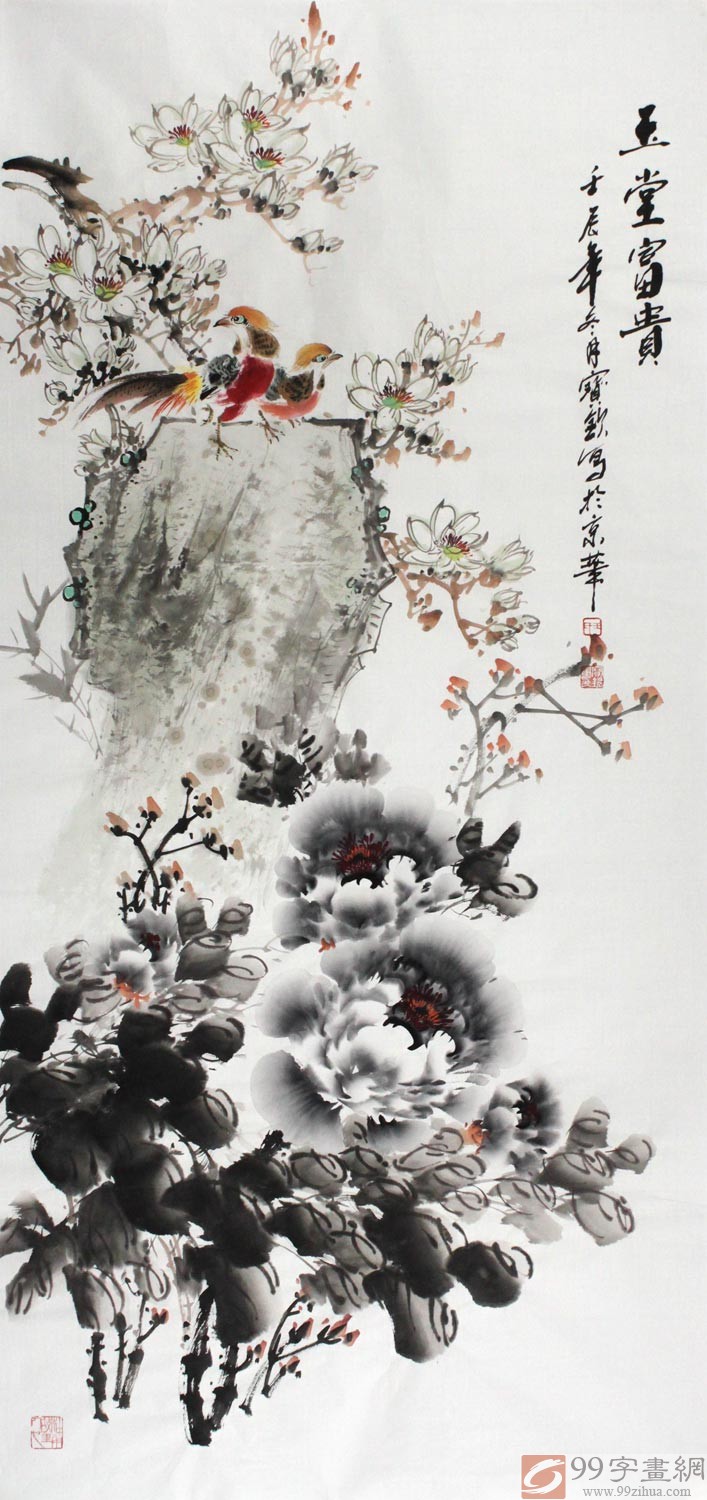 玉堂富貴
壬辰年冬月寶欽寫於京華
99字畫網
www.99zihua.com